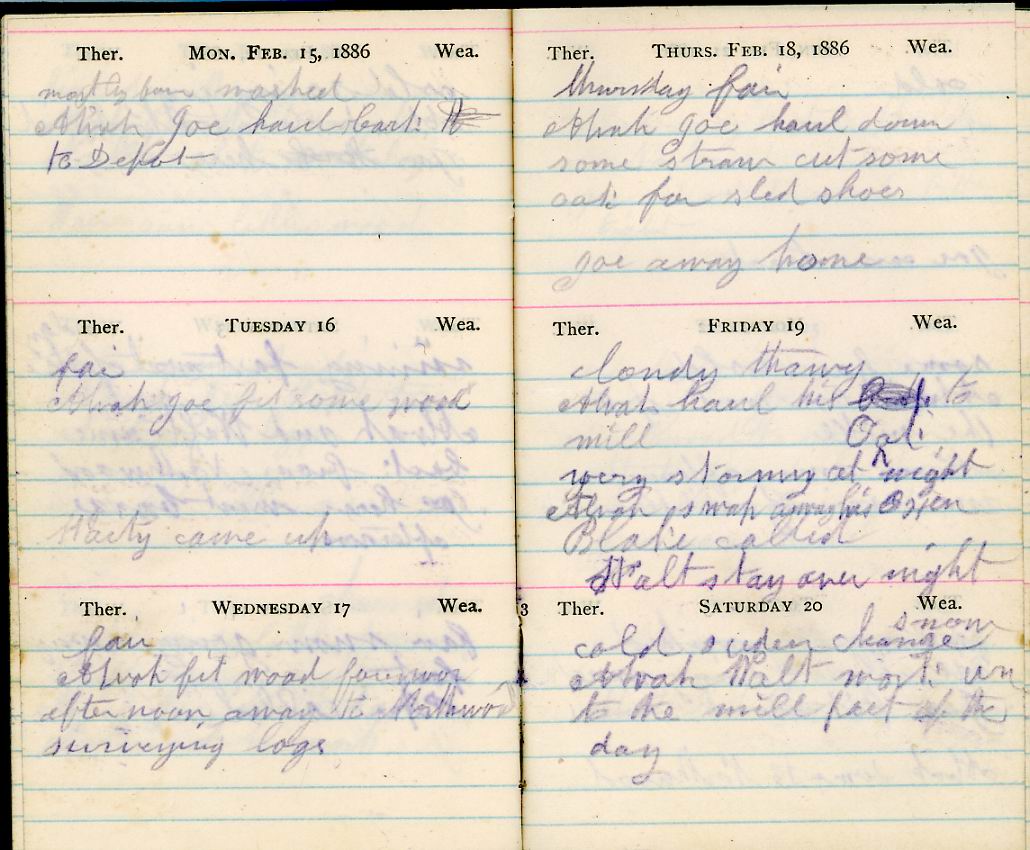 Ther. MON. FEB. 15, 1886 Wea.
mostly fair washed
Alvah Joe haul bark
to Depot
Ther. TUESDAY 16 Wea.
fair
Alvah Joe fit some wood
came up
Ther. WEDNESDAY 17 Wea.
fair
Alvah fit wood forenoon
afternoon away to Northwood
surveying logs
Ther. THURS. FEB. 18, 1886 Wea.
thursday fair
Alvah Joe haul down
some straw cut some
oak for sled shoes
Joe away home
Ther. FRIDAY 19 Wea.
cloudy thawy
Alvah haul his to
mill Oak
very stormy at night
Alvah swap away his Oxen
Blake called
Walt stay over night
3 Ther. SATURDAY 20 Wea.
snow
cold suden change
Alvah Walt work up
to the mill part of the
day